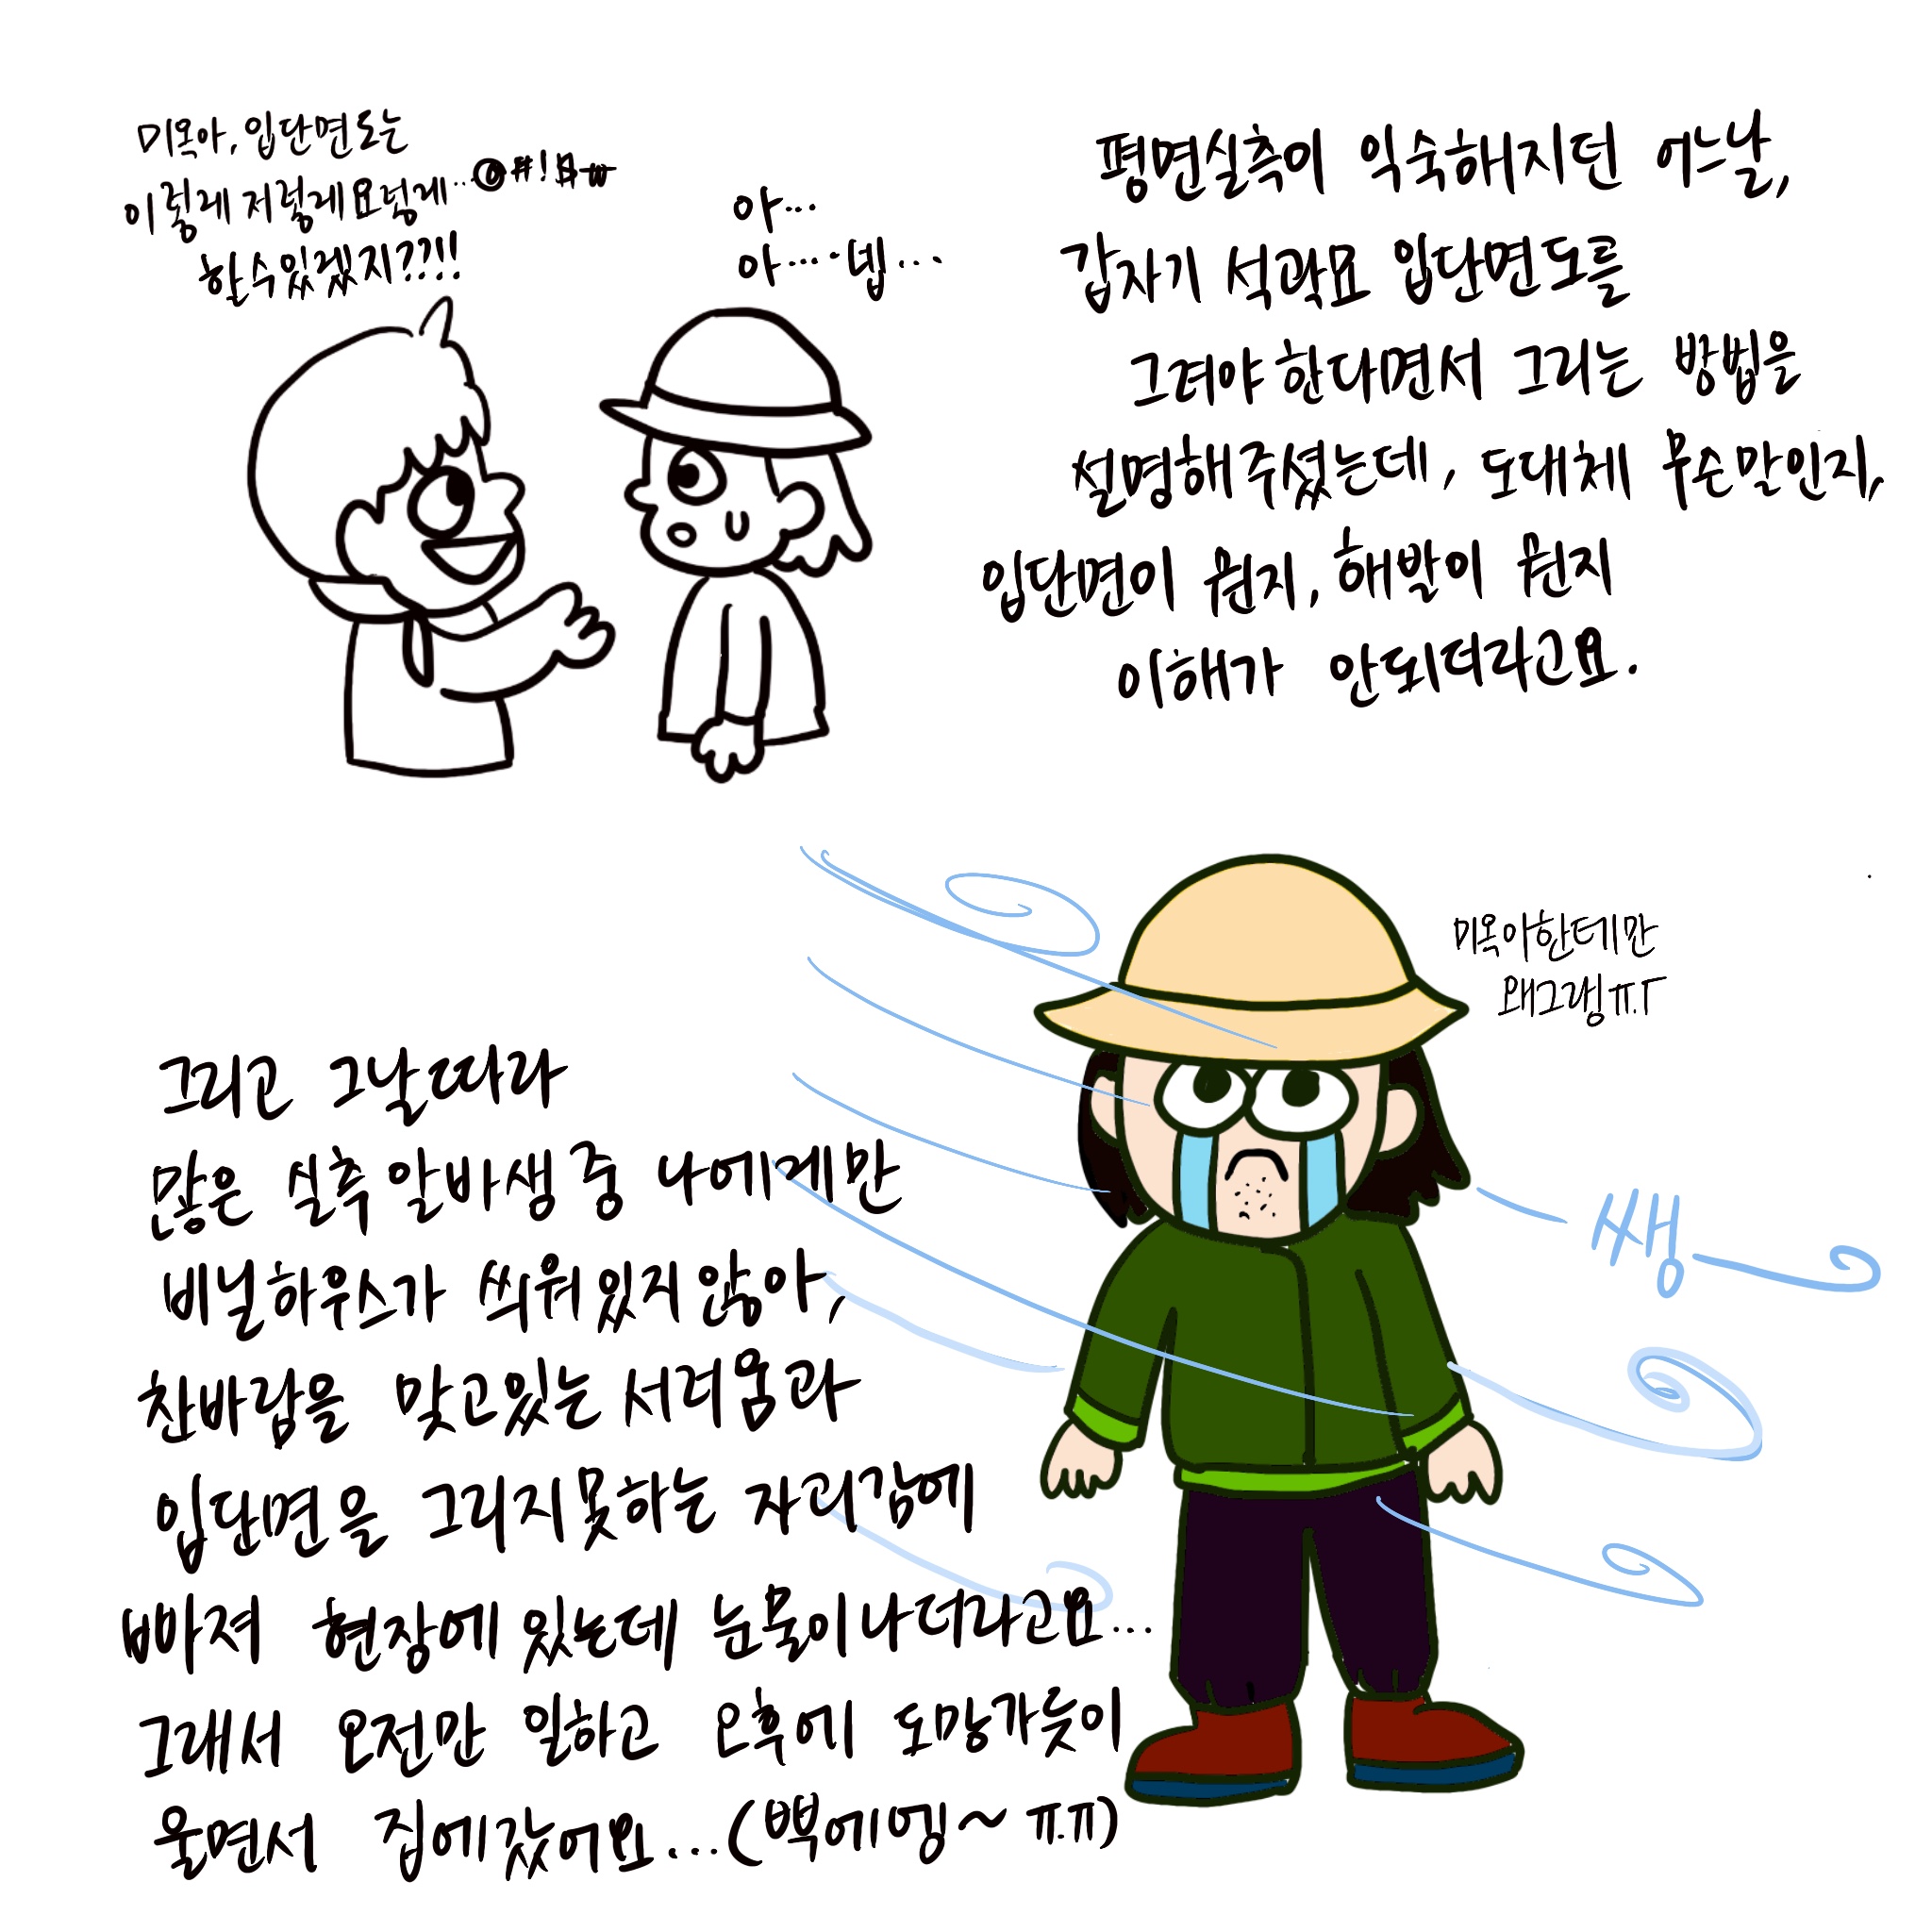 미옥아, 입단면도는
이렇게 저렇게 요렇게..@#!
할수있겠지??!!
아...
아.... 넵...
평면실측이 익숙해지던 어느날,
갑자기 석곽묘 입단면도를
그려야 한다면서 그리는 방법을
설명해주셨는데, 도대체 무슨말인지,
입단면이 뭔지, 해발이 뭔지
이해가 안되더라고요.
미옥아한테만
왜그랭ㅠ.ㅜ
그리고 그날따라
많은 실측 알바생 중 나에게만
비닐하우스가 씌워있지 않아,
찬바람을 맞고있는 서러움과
입단면을 그리지못하는 자괴감에
빠져 현장에 있는데 눈물이나더라고요...
쌩
그래서 오전만 일하고 오후에 도망가듯이
울면서 집에갔어요...(뿩에엥~ ㅠ.ㅠ)